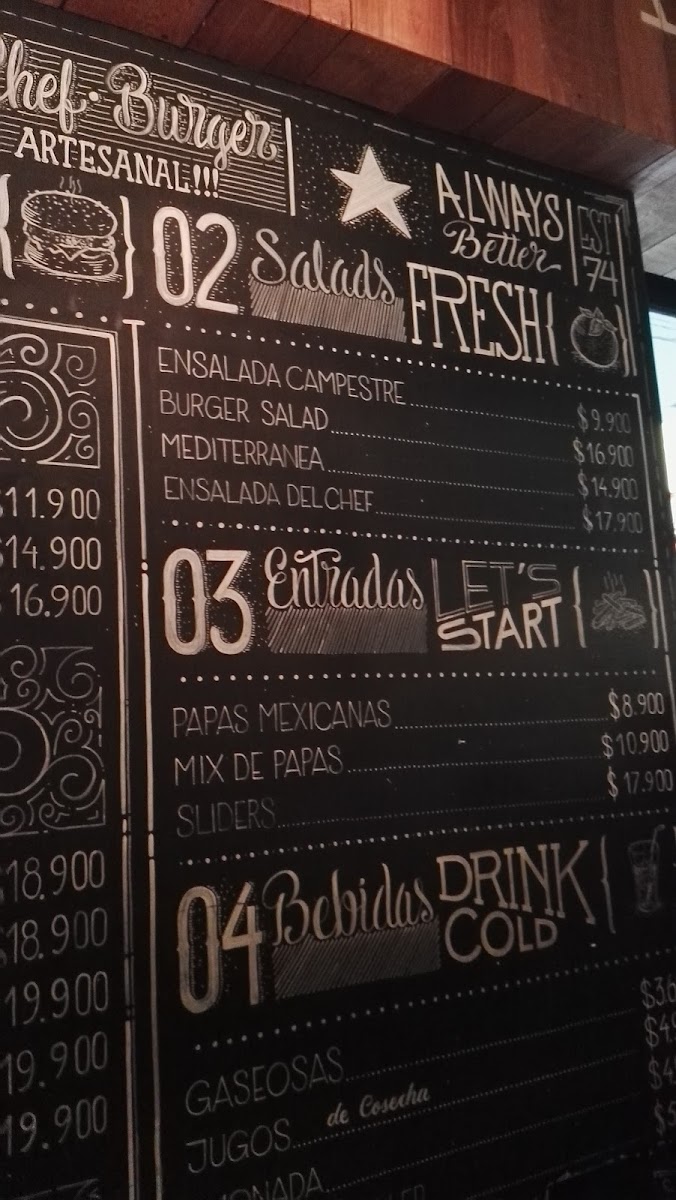 Chef·Burger
ARTESANAL!!!
ALWAYS
Better
EST
74
02 Salads FRESH
ENSALADA CAMPESTRE $9.900
BURGER SALAD $16.900
MEDITERRANEA $14.900
ENSALADA DEL CHEF $17.900
$11.900
$14.900
16.900
03 Entradas LET'S START
PAPAS MEXICANAS $8.900
MIX DE PAPAS $10.900
SLIDERS $17.900
18.900
18.900
19.900
19.900
19.900
04 Bebidas DRINK COLD
GASEOSAS
JUGOS de Cosecha